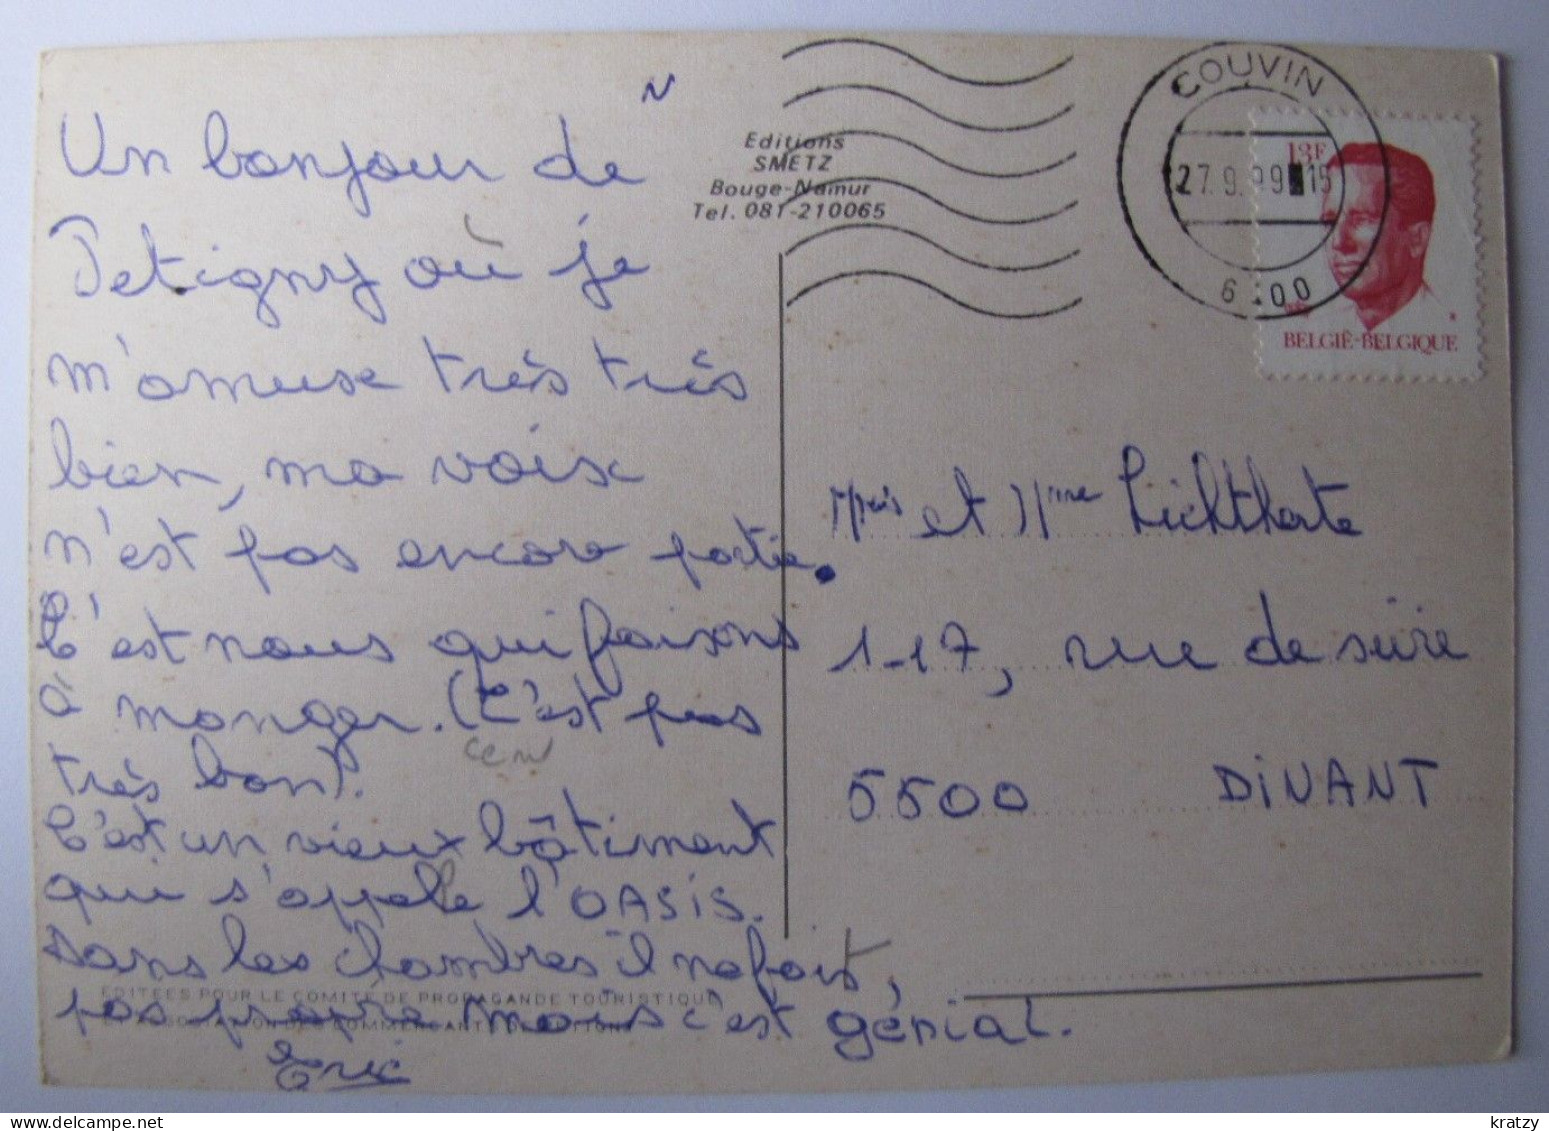 Un bonjour de
Petigny où je
m'amuse très très
bien, ma voix
n'est pas encore partie.
C'est nous qui faisons
à manger. (C'est pas
très bon).
C'est un vieux bâtiment
qui s'appelle l'OASIS.
Dans les chambres il ne fait,
pas propre mais c'est génial.
Eric
Editions
SMETZ
Bouge-Namur
Tel. 081-210065
COUVIN
27.9. 15
13F
BELGIË-BELGIQUE
et Mme
117, rue de
5500 DiNANT
EDITEES POUR LE COMITE DE PROPAGANDE TOURISTIQUE
delcampe.net
kratzy